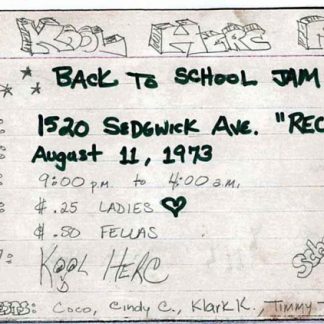 KOOL HERC
BACK TO SCHOOL JAM
1520 SEDGWICK AVE. "REC
August 11, 1973
9:00 p.m. to 4:00 a.m.
$.25 LADIES ♥
$.50 FELLAS
KOOL HERC
Coco, Cindy C., Klark K., Timmy T